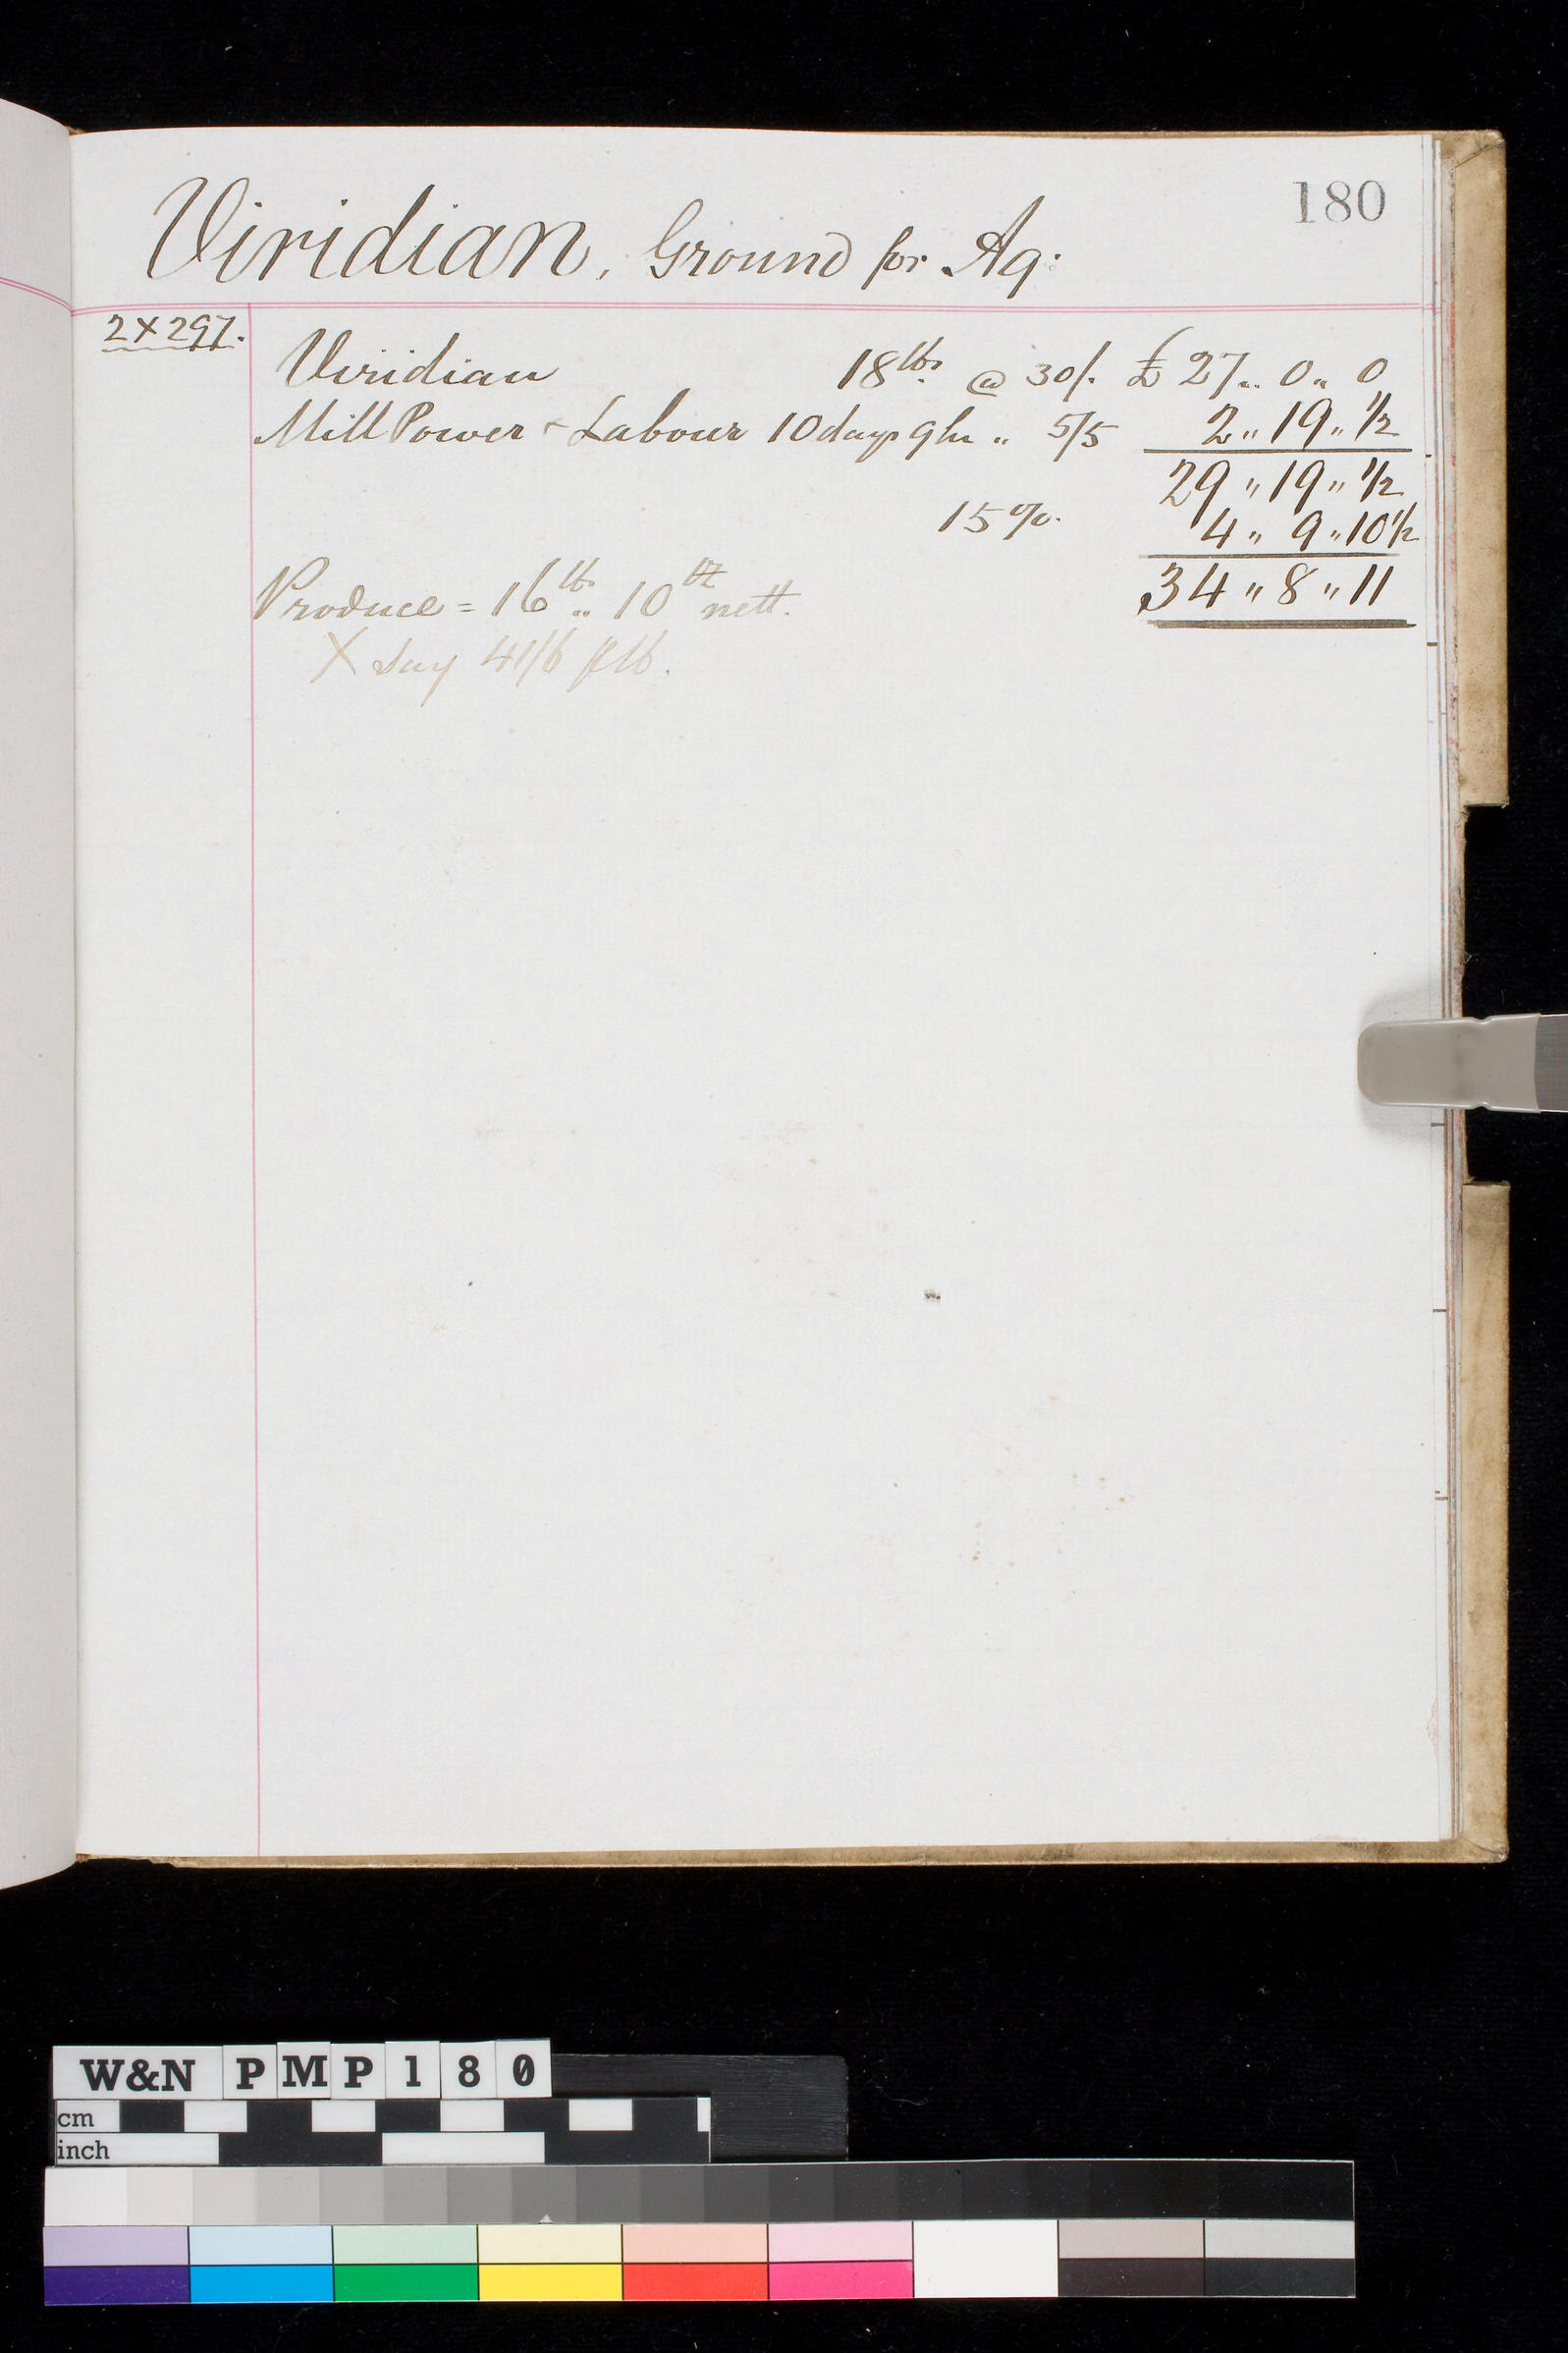 180
Viridian, Ground for Aq:
2X297.
Viridian 18lbs @ 30/. £27 .. 0 .. 0
Mill Power & Labour 10 days 9hr .. 5/5 2 .. 19 .. 1/2
29 .. 19 .. 1/2
15%. 4 .. 9 .. 10 1/2
34 .. 8 .. 11
Produce = 16lbs .. 10oz nett.
X Say 41/6 plb.
W&N PMP180
cm
inch